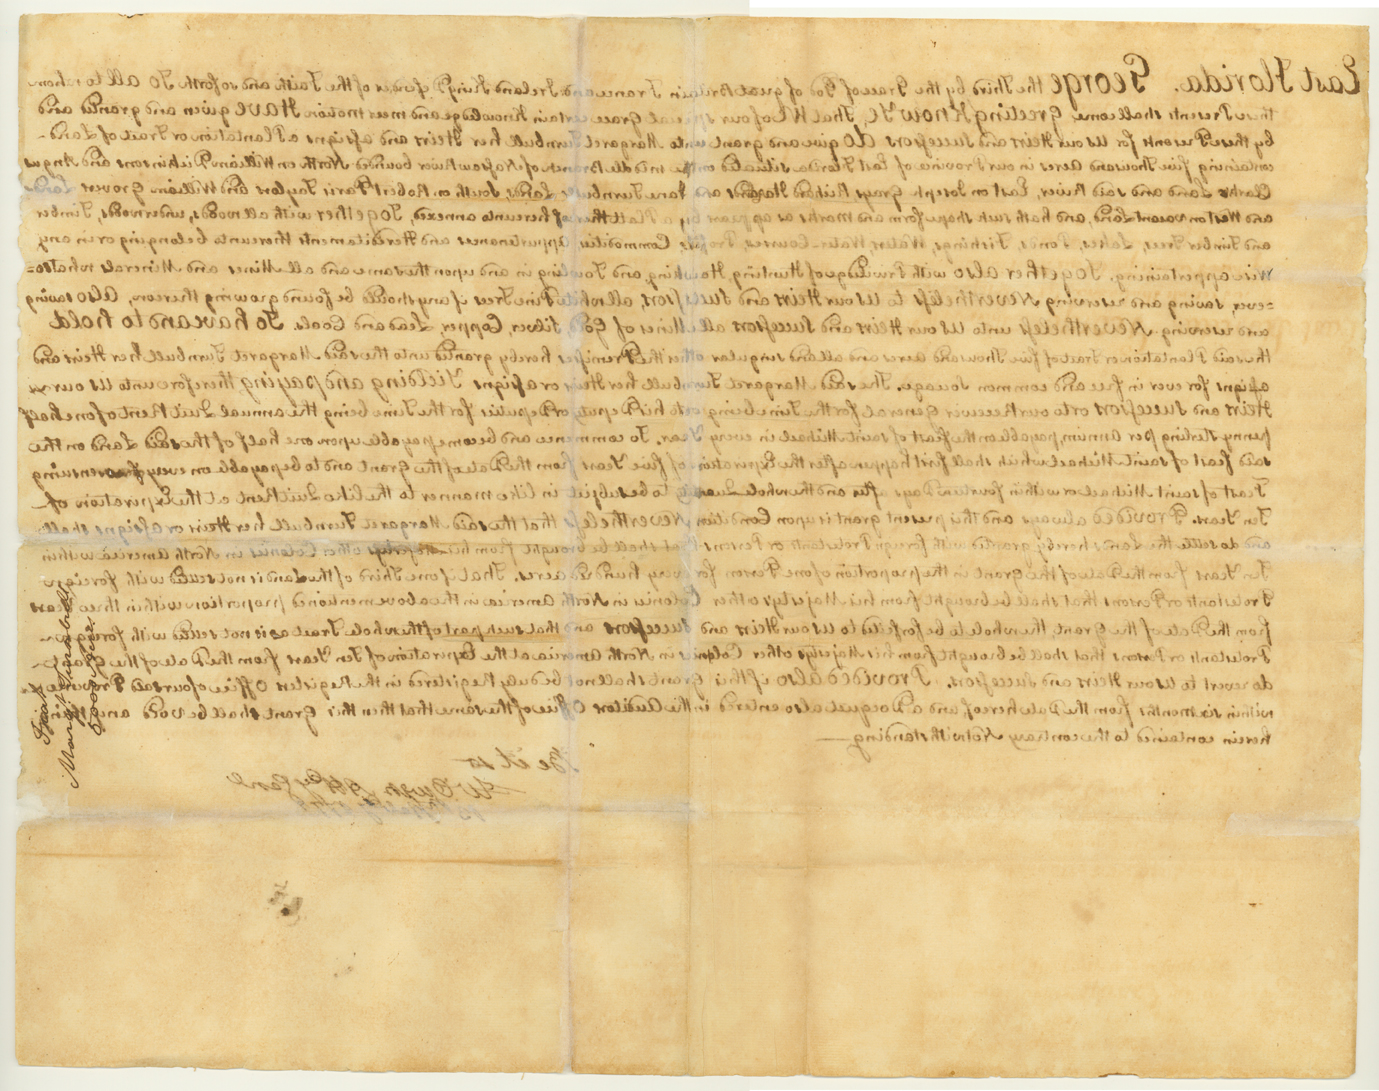 East Florida. George the Third by the Grace of God of great Britain France and Ireland King Defender of the Faith and so forth To all to whom
these Presents shall come Greeting Know Ye, That We of our special Grace certain Knowledge and meer motion Have given and granted and
by these Presents for Us our Heirs and Successors do give and grant unto Margaret Turnbull her Heirs and assigns a Plantation or Tract of Land
containing five Thousand acres in our Province of East Florida situated on the middle Branch of Nassau River bounded North on William Dickinsons and Angus
Clarks Land and said River, East on Joseph Grays Richard and Jane Turnbulls Land, South on Robert Paris Taylors and William Grover Land
and West on vacant Land, and hath such shape form and marks as appear by a Platt thereof hereunto annexed, Together with all woods, underwoods, Timber
and Timber Trees, Lakes, Ponds, Fishings, Waters, Water-Courses, Profits, Commodities Appurtenances and Hereditaments thereunto belonging or in any
Wise appertaining. Together also with Priviledge of Hunting Hawking and Fowling in and upon the same and all Mines and Minerals whatso=
=ever, saving and reserving Nevertheless to Us our Heirs and Successors, all white Pine Trees if any should be found growing thereon, also saving
and reserving Nevertheless unto Us our Heirs and Successors all Mines of Gold, Silver, Copper, Lead and Coals. To have and to hold
the said Plantation or Tract of five Thousand acres and all and singular other the Premises hereby granted unto the said Margaret Turnbull her Heirs and
assigns for ever in free and common soccage. The said Margaret Turnbull her Heirs or assigns Yielding and paying therefor unto Us our
Heirs and Successors or to our Receiver General for the Time being or to his Deputy or Deputies for the Time being the annual Quit Rent of one half
penny sterling per acre per annum, payable on the feast of saint Michael in every Year. To commence and become payable upon one half of the said Land on the
said feast of saint Michael which shall first happen after the Expiration of five Years from the Date of the Grant and to be payable on every ensuing
Feast of saint Michael or within fourteen Days after and the whole Quantity to be subject in like manner to the like Quit Rent at the Expiration of
Ten Years. Provided always and this present grant is upon Condition Nevertheless that the said Margaret Turnbull her Heirs or assigns shall
and do settle the Lands hereby granted with foreign Protestants or Persons that shall be brought from his Majestys other Colonies in North America within
Ten Years from the Date of the Grant in the proportion of one Person for every hundred acres. That if one Third of the Land is not settled with foreign
Protestants or Persons that shall be brought from his Majestys other Colonies in North America in the above mentioned proportion within three Years
from the Date of the Grant, the whole to be forfeited to Us our Heirs and Successors and that such part of the whole Tract as is not settled with foreign
Protestants or Persons that shall be brought from his Majestys other Colonies in North America at the Expiration of Ten Years from the Date of the Grant
do revert to Us our Heirs and Successors. Provided also if this Grant shall not be duly Registered in the Registers Office of our said Province
within six months from the Date hereof, and a Docquet also entered in the Auditors Office of the same that then this Grant shall be void any thing
herein contained to the contrary Notwithstanding
Be it so
Margaret Turnbull
5000 acres